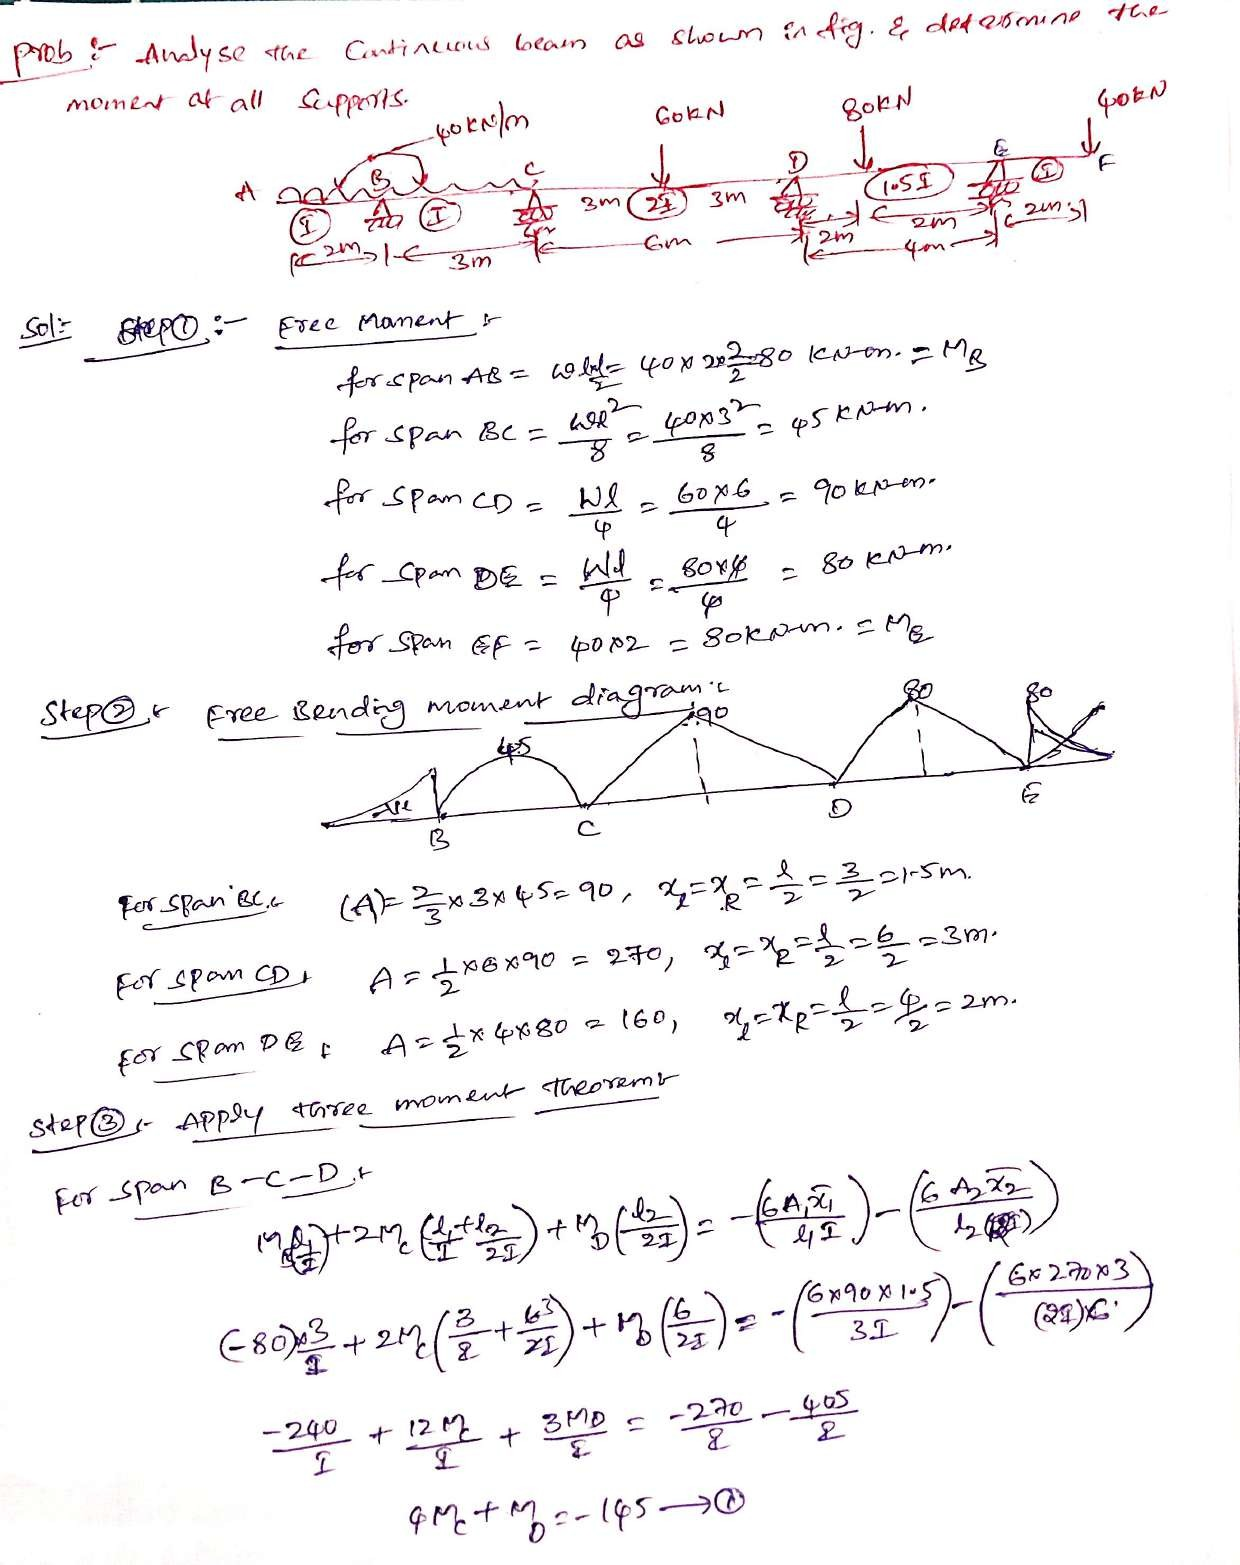 Prob :- Analyse the Continuous beam as shown in fig. & determine the
moment at all Supports.
40KN/m 60KN 80KN 40KN
A B C D E F
I I 3m 2I 3m 1.5I I
2m 3m 6m 2m 2m 2m
4m
Sol:- Step① :- Free Moment :-
for span AB = = 40 x 2 x 2/2 = 80 KN-m. = MB
for span BC = wl²/8 = 40x3²/8 = 45 KN-m.
for span CD = Wl/4 = 60x6/4 = 90 KN-m.
for span DE = Wl/4 = 80x4/4 = 80 KN-m.
for span EF = 40x2 = 80KN-m. = ME
Step② :- Free Bending moment diagram :-
45 90 80 80
+ve
B C D E
For span BC :- (A) = 2/3 x 3 x 45 = 90, xl = xR = l/2 = 3/2 = 1.5m.
For span CD :- A = 1/2 x 6 x 90 = 270, xl = xR = l/2 = 6/2 = 3m.
For span DE :- A = 1/2 x 4 x 80 = 160, xl = xR = l/2 = 4/2 = 2m.
Step③ :- Apply three moment theorem :-
For span B-C-D :-
MB(l1/I) + 2Mc(l1/I + l2/2I) + MD(l2/2I) = -(6A1x̄1/l1I) - (6A2x̄2/l2(2I))
(-80)x3/I + 2Mc(3/I + 6/2I) + MD(6/2I) = -(6x90x1.5/3I) - (6x270x3/(2I)x6)
-240/I + 12Mc/I + 3MD/I = -270/I - 405/I
4Mc + MD = -145 → ①